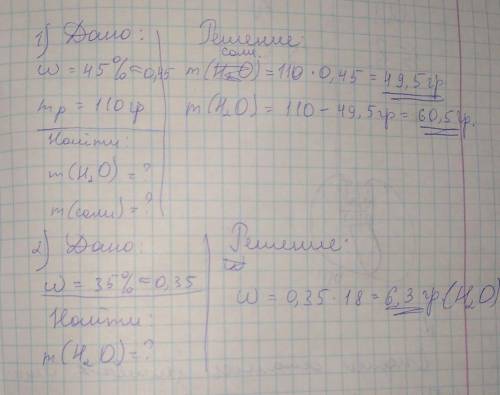 1) Дано:
ω = 45% = 0,45
mр = 110 гр
Найти:
m(H₂O) = ?
m(соли) = ?
Решение:
соли
m(H₂O) = 110 · 0,45 = 49,5 гр
m(H₂O) = 110 – 49,5 гр = 60,5 гр.
2) Дано:
ω = 35% = 0,35
Найти:
m(H₂O) = ?
Решение:
ω = 0,35 · 18 = 6,3 гр (H₂O)